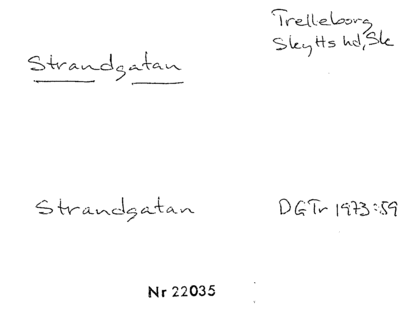 Trelleborg
Skytts hd, Sk
Strandgatan
Strandgatan DGTr 1973:59
Nr 22035